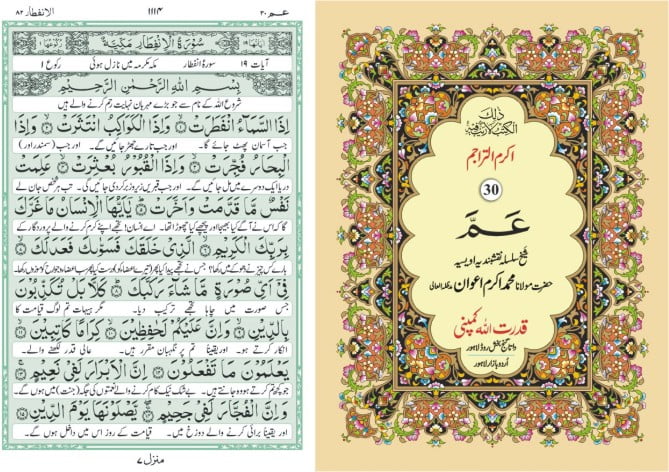 ذلک
الکتب لا ریب فیہ
اکرم التراجم
30
عَمَّ
شیخ سلسلہ نقشبندیہ اویسیہ
حضرت مولانا محمد اکرم اعوان مدظلہ العالی
قدرت اللہ کمپنی
داتا گنج بخش روڈ لاہور
اُردو بازار لاہور
عــم ۳۰ ۱۱۱۴ الانفطار ۸۲
سُوْرَةُ الْاِنْفِطَارِ مَكِّيَّةٌ
آیات ۱۹ سورۃ انفطار مکہ مکرمہ میں نازل ہوئی رکوع ۱
بِسْمِ اللّٰهِ الرَّحْمٰنِ الرَّحِيْمِ
شروع اللہ کے نام سے جو بڑے مہربان نہایت رحم کرنے والے ہیں
اِذَا السَّمَآءُ انْفَطَرَتْ ۝ وَاِذَا الْكَوَاكِبُ انْتَثَرَتْ ۝ وَاِذَا
جب آسمان پھٹ جائے گا۔ اور جب تارے جھڑ جائیں گے۔ اور جب (سمندر اور)
الْبِحَارُ فُجِّرَتْ ۝ وَاِذَا الْقُبُوْرُ بُعْثِرَتْ ۝ عَلِمَتْ
دریا ایک دوسرے میں مل جائیں گے۔ اور جب قبریں زیر و زبر کر دی جائیں گی۔ تب ہر شخص جان لے
نَفْسٌ مَّا قَدَّمَتْ وَاَخَّرَتْ ۝ يٰۤاَيُّهَا الْاِنْسَانُ مَا غَرَّكَ
گا کہ اس نے آگے کیا بھیجا اور پیچھے کیا چھوڑا تھا۔ اے انسان تجھے اپنے کرم کرنے والے پروردگار کے
بِرَبِّكَ الْكَرِيْمِ ۝ الَّذِيْ خَلَقَكَ فَسَوّٰىكَ فَعَدَلَكَ ۝
بارے کس چیز نے دھوکے میں رکھا؟ جس نے تجھے پیدا کیا پھر (تیرے اعضا کو) درست کیا پھر سب اعضا جو جوڑ کو موزوں رکھا
فِيْۤ اَيِّ صُوْرَةٍ مَّا شَآءَ رَكَّبَكَ ۝ كَلَّا بَلْ تُكَذِّبُوْنَ
جس صورت میں چاہا تجھے ترکیب دیا۔ مگر ہیہات تم لوگ قیامت کا
بِالدِّيْنِ ۝ وَاِنَّ عَلَيْكُمْ لَحٰفِظِيْنَ ۝ كِرَامًا كَاتِبِيْنَ ۝
انکار کرتے ہو۔ اور یقیناً تم پر نگہبان مقرر ہیں۔ عالی قدر لکھنے والے۔
يَعْلَمُوْنَ مَا تَفْعَلُوْنَ ۝ اِنَّ الْاَبْرَارَ لَفِيْ نَعِيْمٍ ۝
جو کچھ تم کرتے ہو وہ جانتے ہیں۔ بے شک نیک کام کرنے والے نعمتوں کی جگہ (جنت) میں ہوں گے۔
وَاِنَّ الْفُجَّارَ لَفِيْ جَحِيْمٍ ۝ يَّصْلَوْنَهَا يَوْمَ الدِّيْنِ ۝
اور یقیناً برائی کرنے والے دوزخ میں۔ قیامت کے روز اس میں داخل ہوں گے۔
منزل ۷